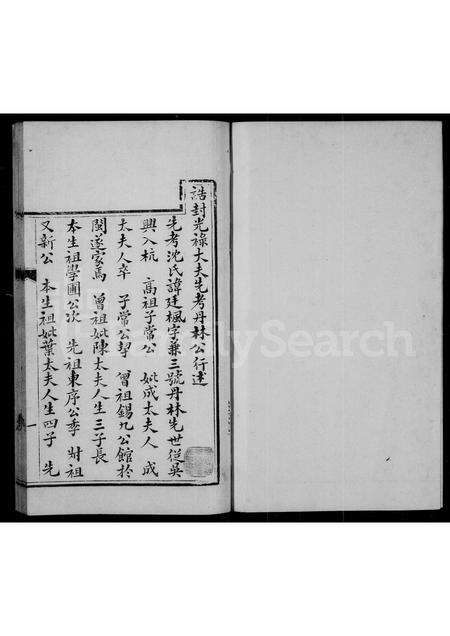 誥封光祿大夫先考丹林公行述
先考沈氏諱廷楓字兼三號丹林先世從吳
興入杭 高祖子常公 妣成太夫人 成
太夫人卒 子常公挈 曾祖錫九公館於
閩遂家焉 曾祖妣陳太夫人生三子長
本生祖學圃公次 先祖東序公季 尌祖
又新公 本生祖妣葉太夫人生四子 先
FamilySearch